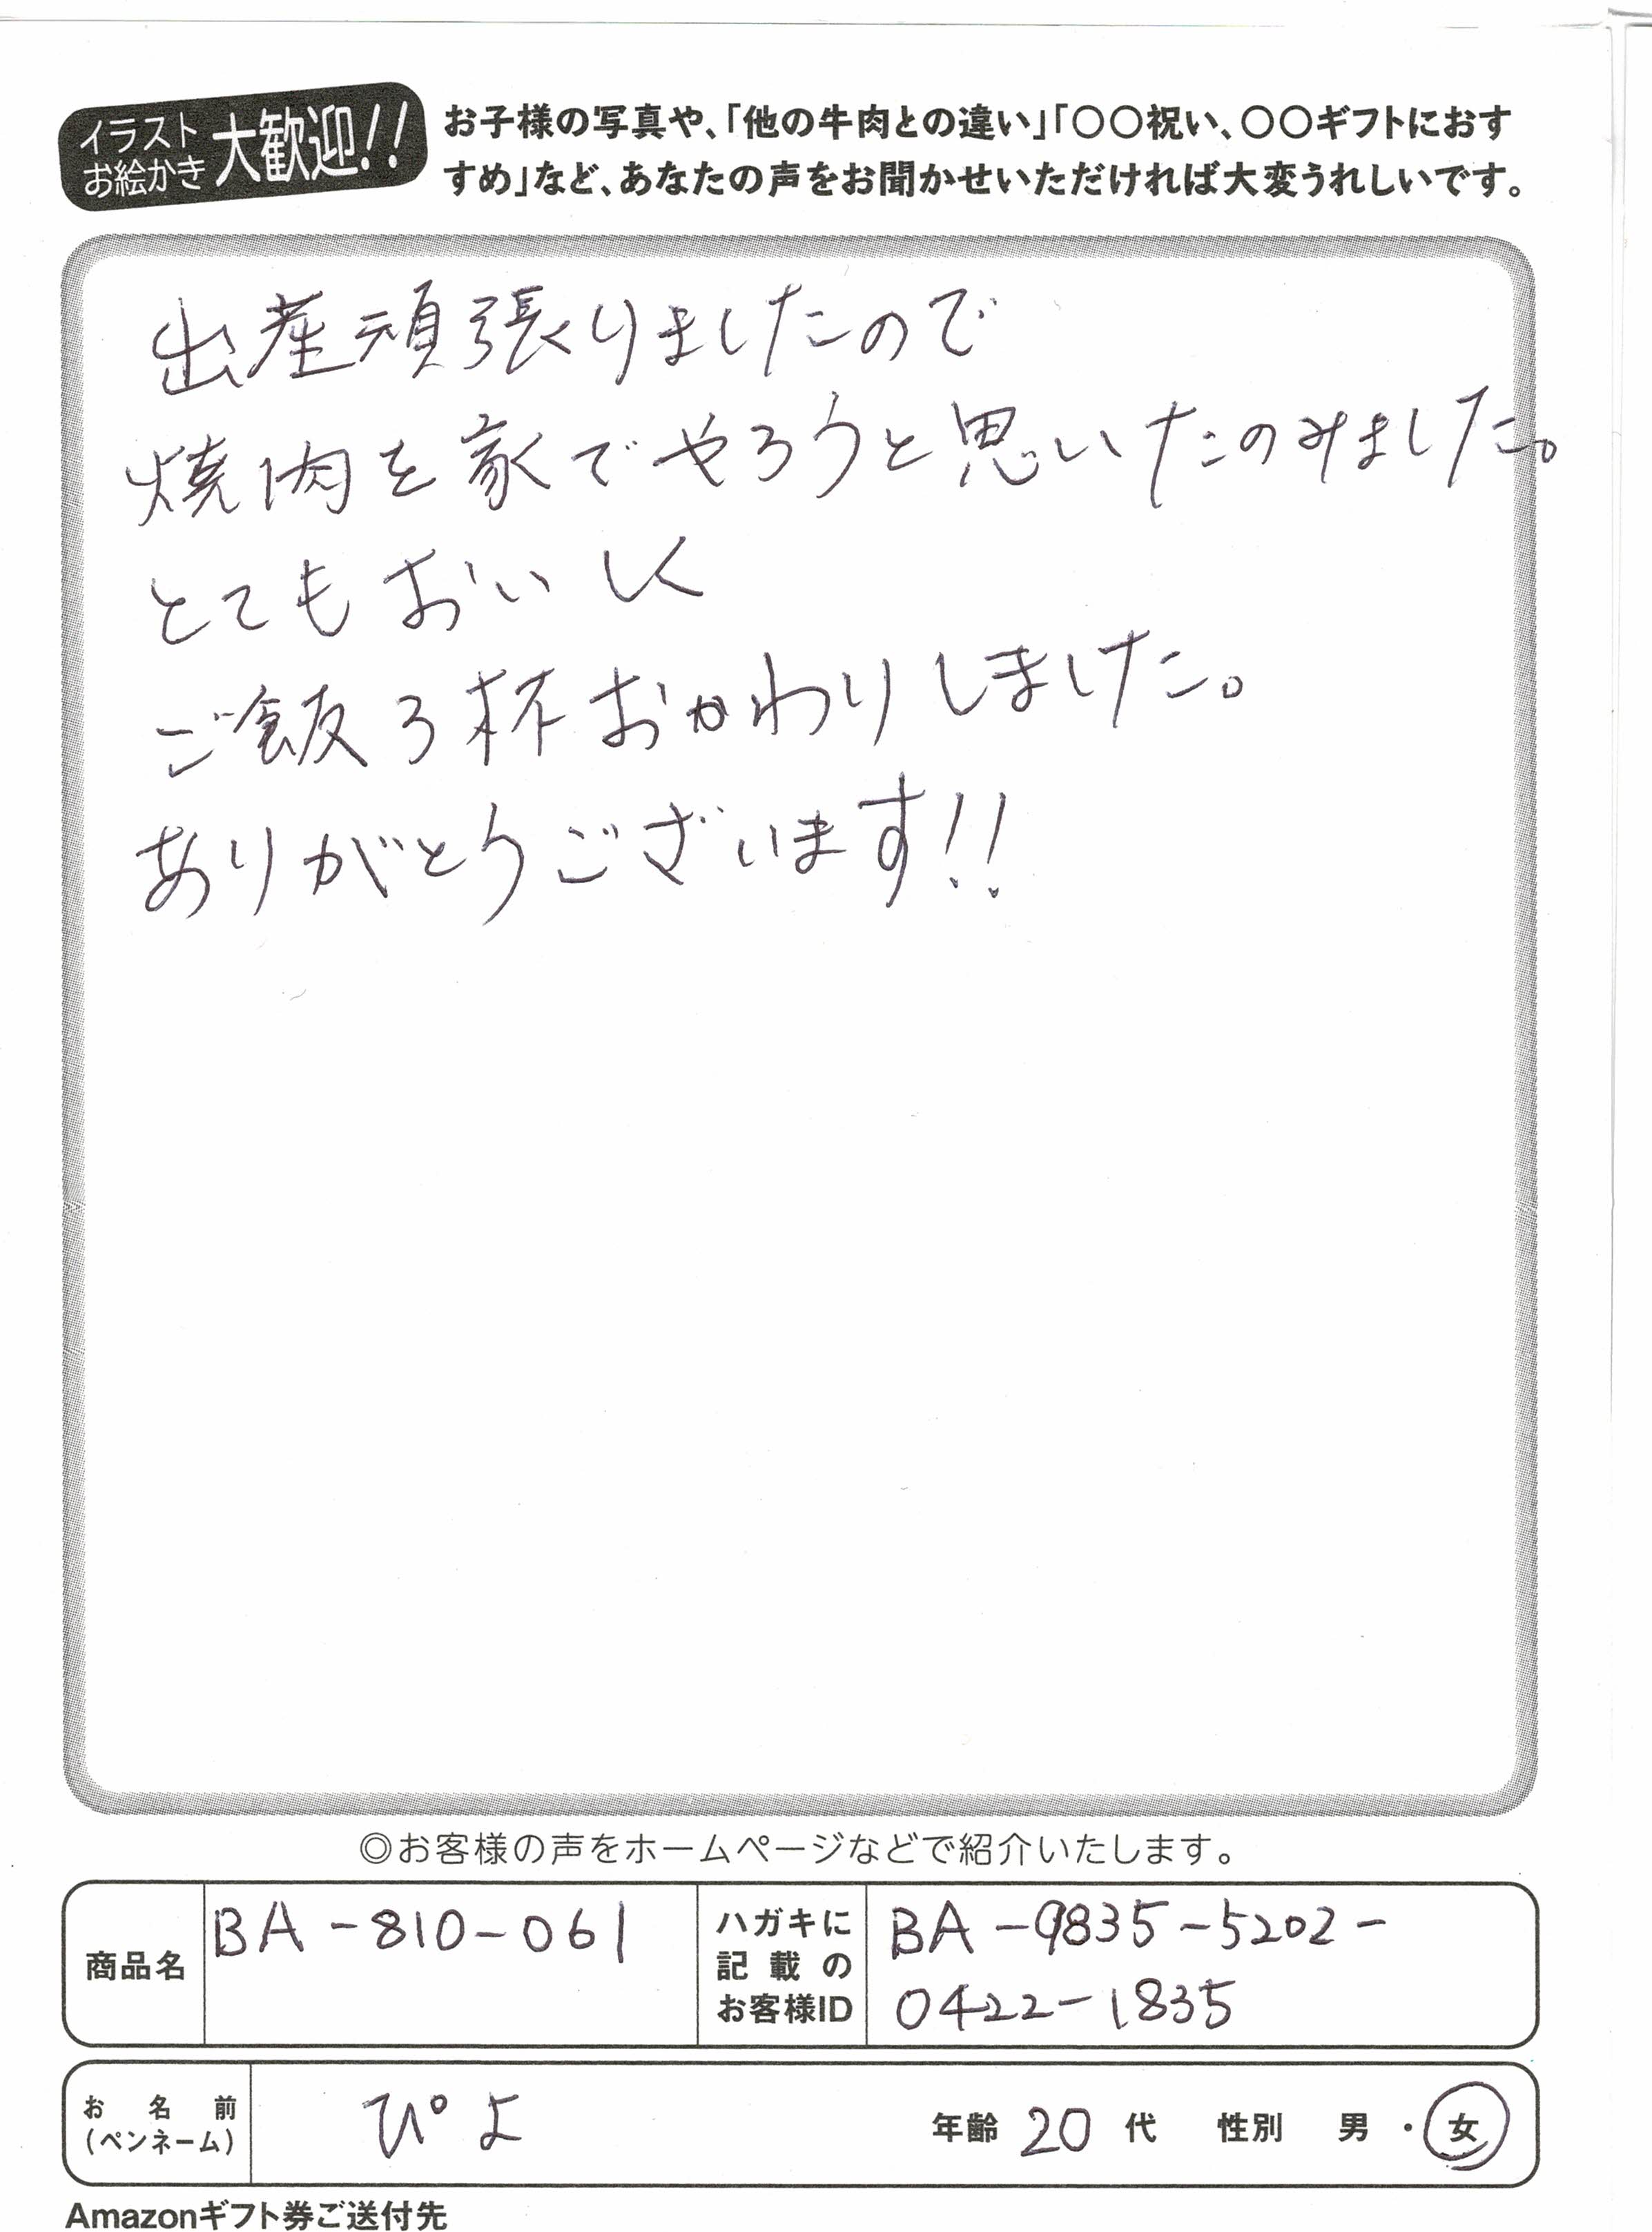 イラスト
お絵かき
大歓迎!!
お子様の写真や、「他の牛肉との違い」「〇〇祝い、〇〇ギフトにおす
すめ」など、あなたの声をお聞かせいただければ大変うれしいです。
出産頑張りましたので
焼肉を家でやろうと思いたのみました。
とてもおいしく
ご飯3杯おかわりしました。
ありがとうございます!!
◎お客様の声をホームページなどで紹介いたします。
商品名
BA-810-061
ハガキに
記載の
お客様ID
BA-9835-5202-
0422-1835
お名前
(ペンネーム)
ぴよ
年齢 20 代 性別 男・女
Amazonギフト券ご送付先